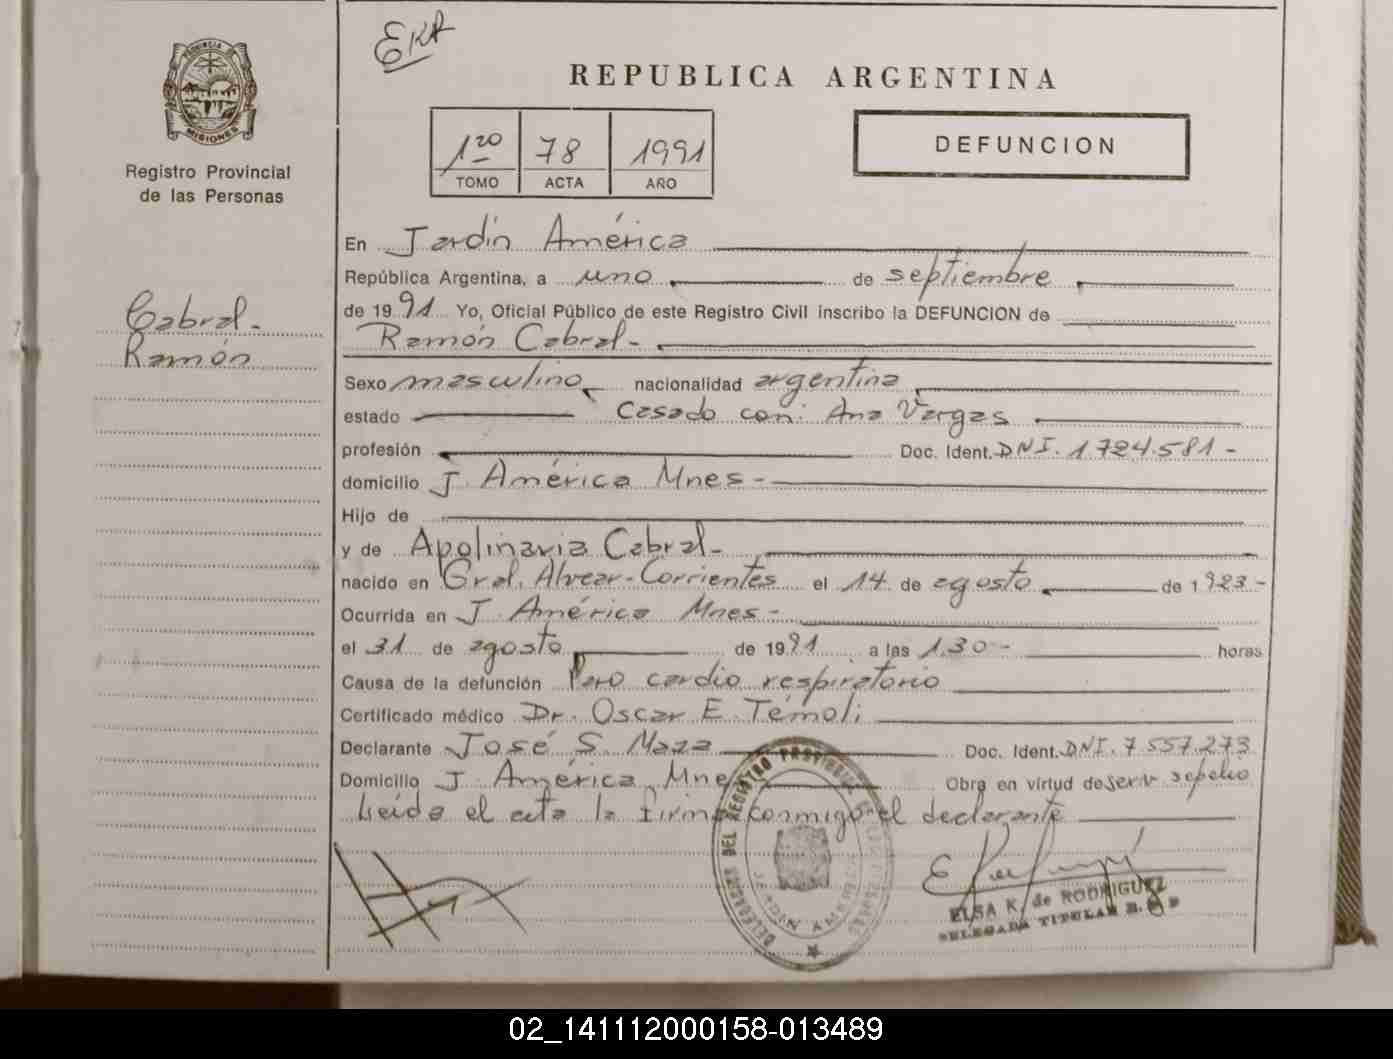 EKR
PROVINCIA DE
MISIONES
Registro Provincial
de las Personas
REPUBLICA ARGENTINA
1ro 78 1991
TOMO ACTA AÑO
DEFUNCION
En Jardín América
República Argentina, a uno de septiembre
de 1991 Yo, Oficial Público de este Registro Civil inscribo la DEFUNCION de
Ramón Cabral-
Cabral-
Ramón
Sexo masculino nacionalidad argentina
estado casado con: Ana Vargas
profesión Doc. Ident. DNI. 1724.581-
domicilio J. América Mnes-
Hijo de
y de Apolinaria Cabral-
nacido en Gral. Alvear-Corrientes el 14 de agosto de 1923-
Ocurrida en J. América Mnes-
el 31 de agosto de 1991 a las 1.30- horas
Causa de la defunción Paro cardio respiratorio
Certificado médico Dr. Oscar E. Témoli
Declarante José S. Maza Doc. Ident. DNI. 7557.273
Domicilio J. América, Mne Obra en virtud de serv. sepelio
Leída el acta la firma conmigo el declarante
DELEGACION DEL REGISTRO PROVINCIAL
JARDIN AMERICA
ELSA K. de RODRIGUEZ
DELEGADA TITULAR R. P.
02_141112000158-013489